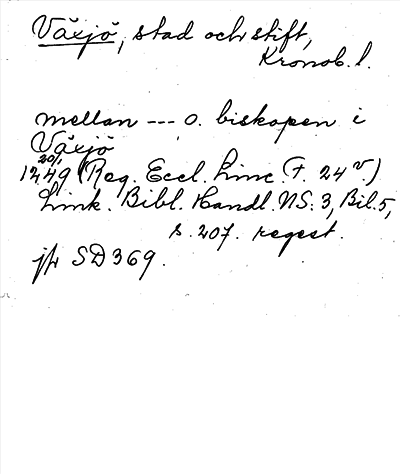 Växjö, stad och stift,
Kronob. l.
mellan --- o. biskopen i
Växjö
20/1
1249 (Reg. Eccl. Linc (F. 24 v.)
Link. Bibl. Handl. NS: 3, Bil. 5,
s. 207. regest.
jfr SD 369.